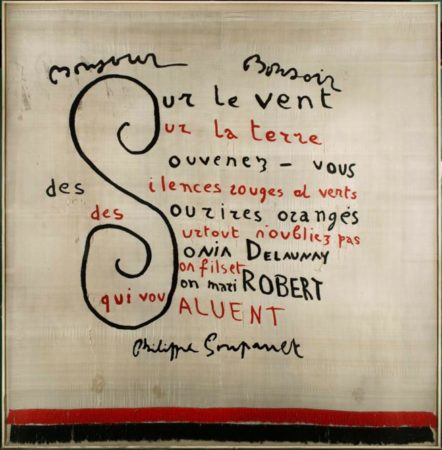 Bonjour Bonsoir
Sur le vent
Sur la terre
Souvenez – vous
des Silences rouges et verts
des Sourires orangés
Surtout n'oubliez pas
SONIA DELAUNAY
Son fils et
Son mari ROBERT
qui vou SALUENT
Philippe Soupault